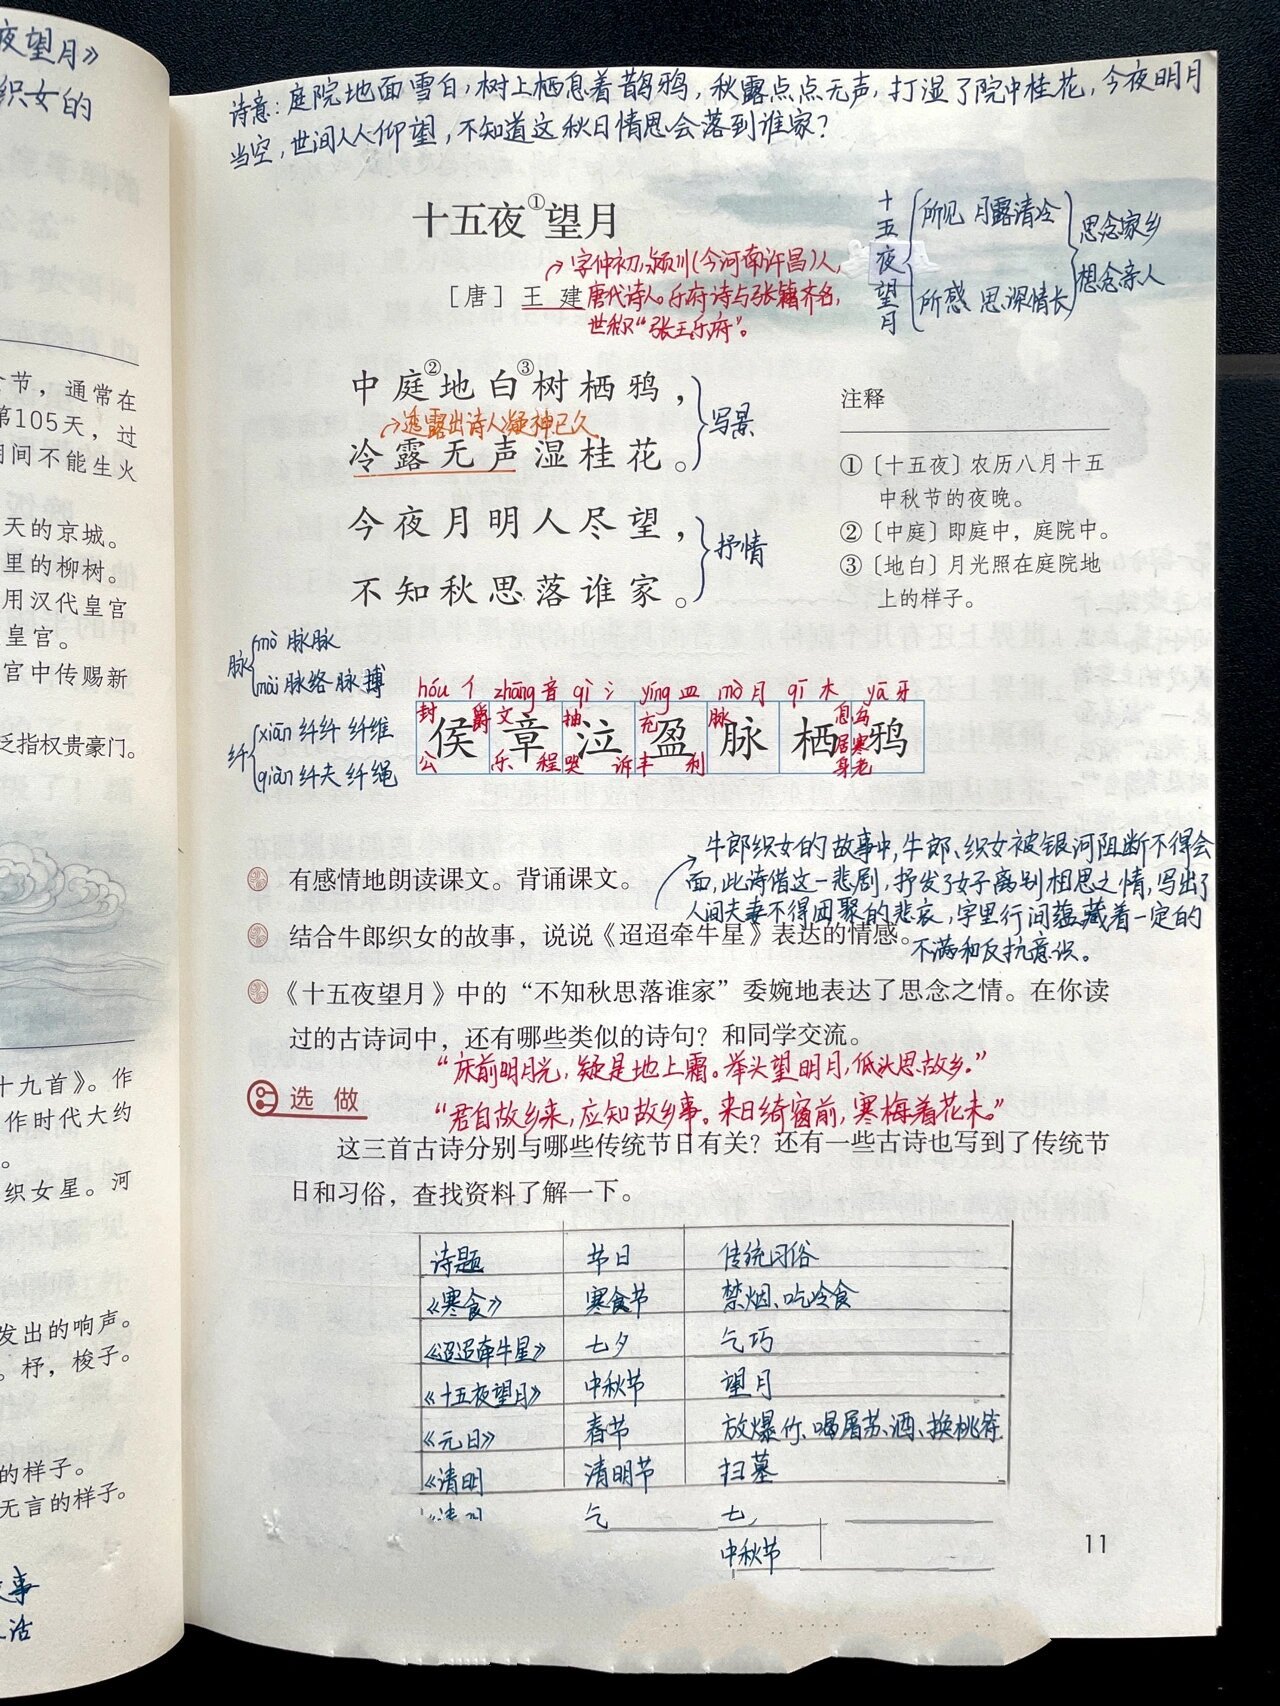 夜望月》
织女的
节，通常在
第105天，过
期间不能生火
天的京城。
里的柳树。
用汉代皇宫
皇宫。
宫中传赐新
泛指权贵豪门。
十九首》。作
作时代大约
织女星。河
发出的响声。
杼，梭子。
的样子。
无言的样子。
事
活
诗意：庭院地面雪白，树上栖息着鹊鸦，秋露点点无声，打湿了院中桂花，今夜明月
当空，世间人人仰望，不知道这秋日情思会落到谁家？
十五夜①望月
字仲初，颍川（今河南许昌）人，
［唐］王建 唐代诗人。乐府诗与张籍齐名，
世称“张王乐府”。
十五夜望月
所见 月露清冷
所感 思深情长
思念家乡
想念亲人
中庭②地白③树栖鸦，
透露出诗人凝神已久
冷露无声湿桂花。
写景
今夜月明人尽望，
不知秋思落谁家。
抒情
注释
①〔十五夜〕农历八月十五
中秋节的夜晚。
②〔中庭〕即庭中，庭院中。
③〔地白〕月光照在庭院地
上的样子。
脉
mò 脉脉
mài 脉络 脉搏
纤
xiān 纤纤 纤维
qiàn 纤夫 纤绳
hóu 亻 zhāng 音 qì 氵 yíng 皿 mò 月 qī 木 yā 牙
封 爵 文 抽 充 脉 息 乌
侯 章 泣 盈 脉 栖 鸦
居 寒
公 乐 程 哭 诉 丰 利 身 老
牛郎织女的故事中，牛郎、织女被银河阻断不得会
面，此诗借这一悲剧，抒发了女子离别相思之情，写出了
人间夫妻不得团聚的悲哀，字里行间蕴藏着一定的
不满和反抗意识。
有感情地朗读课文。背诵课文。
结合牛郎织女的故事，说说《迢迢牵牛星》表达的情感。
《十五夜望月》中的“不知秋思落谁家”委婉地表达了思念之情。在你读
过的古诗词中，还有哪些类似的诗句？和同学交流。
“床前明月光，疑是地上霜。举头望明月，低头思故乡。”
选做
“君自故乡来，应知故乡事。来日绮窗前，寒梅着花未。”
这三首古诗分别与哪些传统节日有关？还有一些古诗也写到了传统节
日和习俗，查找资料了解一下。
诗题 节日 传统习俗
《寒食》 寒食节 禁烟、吃冷食
《迢迢牵牛星》 七夕 乞巧
《十五夜望月》 中秋节 望月
《元日》 春节 放爆竹、喝屠苏酒、换桃符
《清明 清明节 扫墓
乞 七
中秋节
11